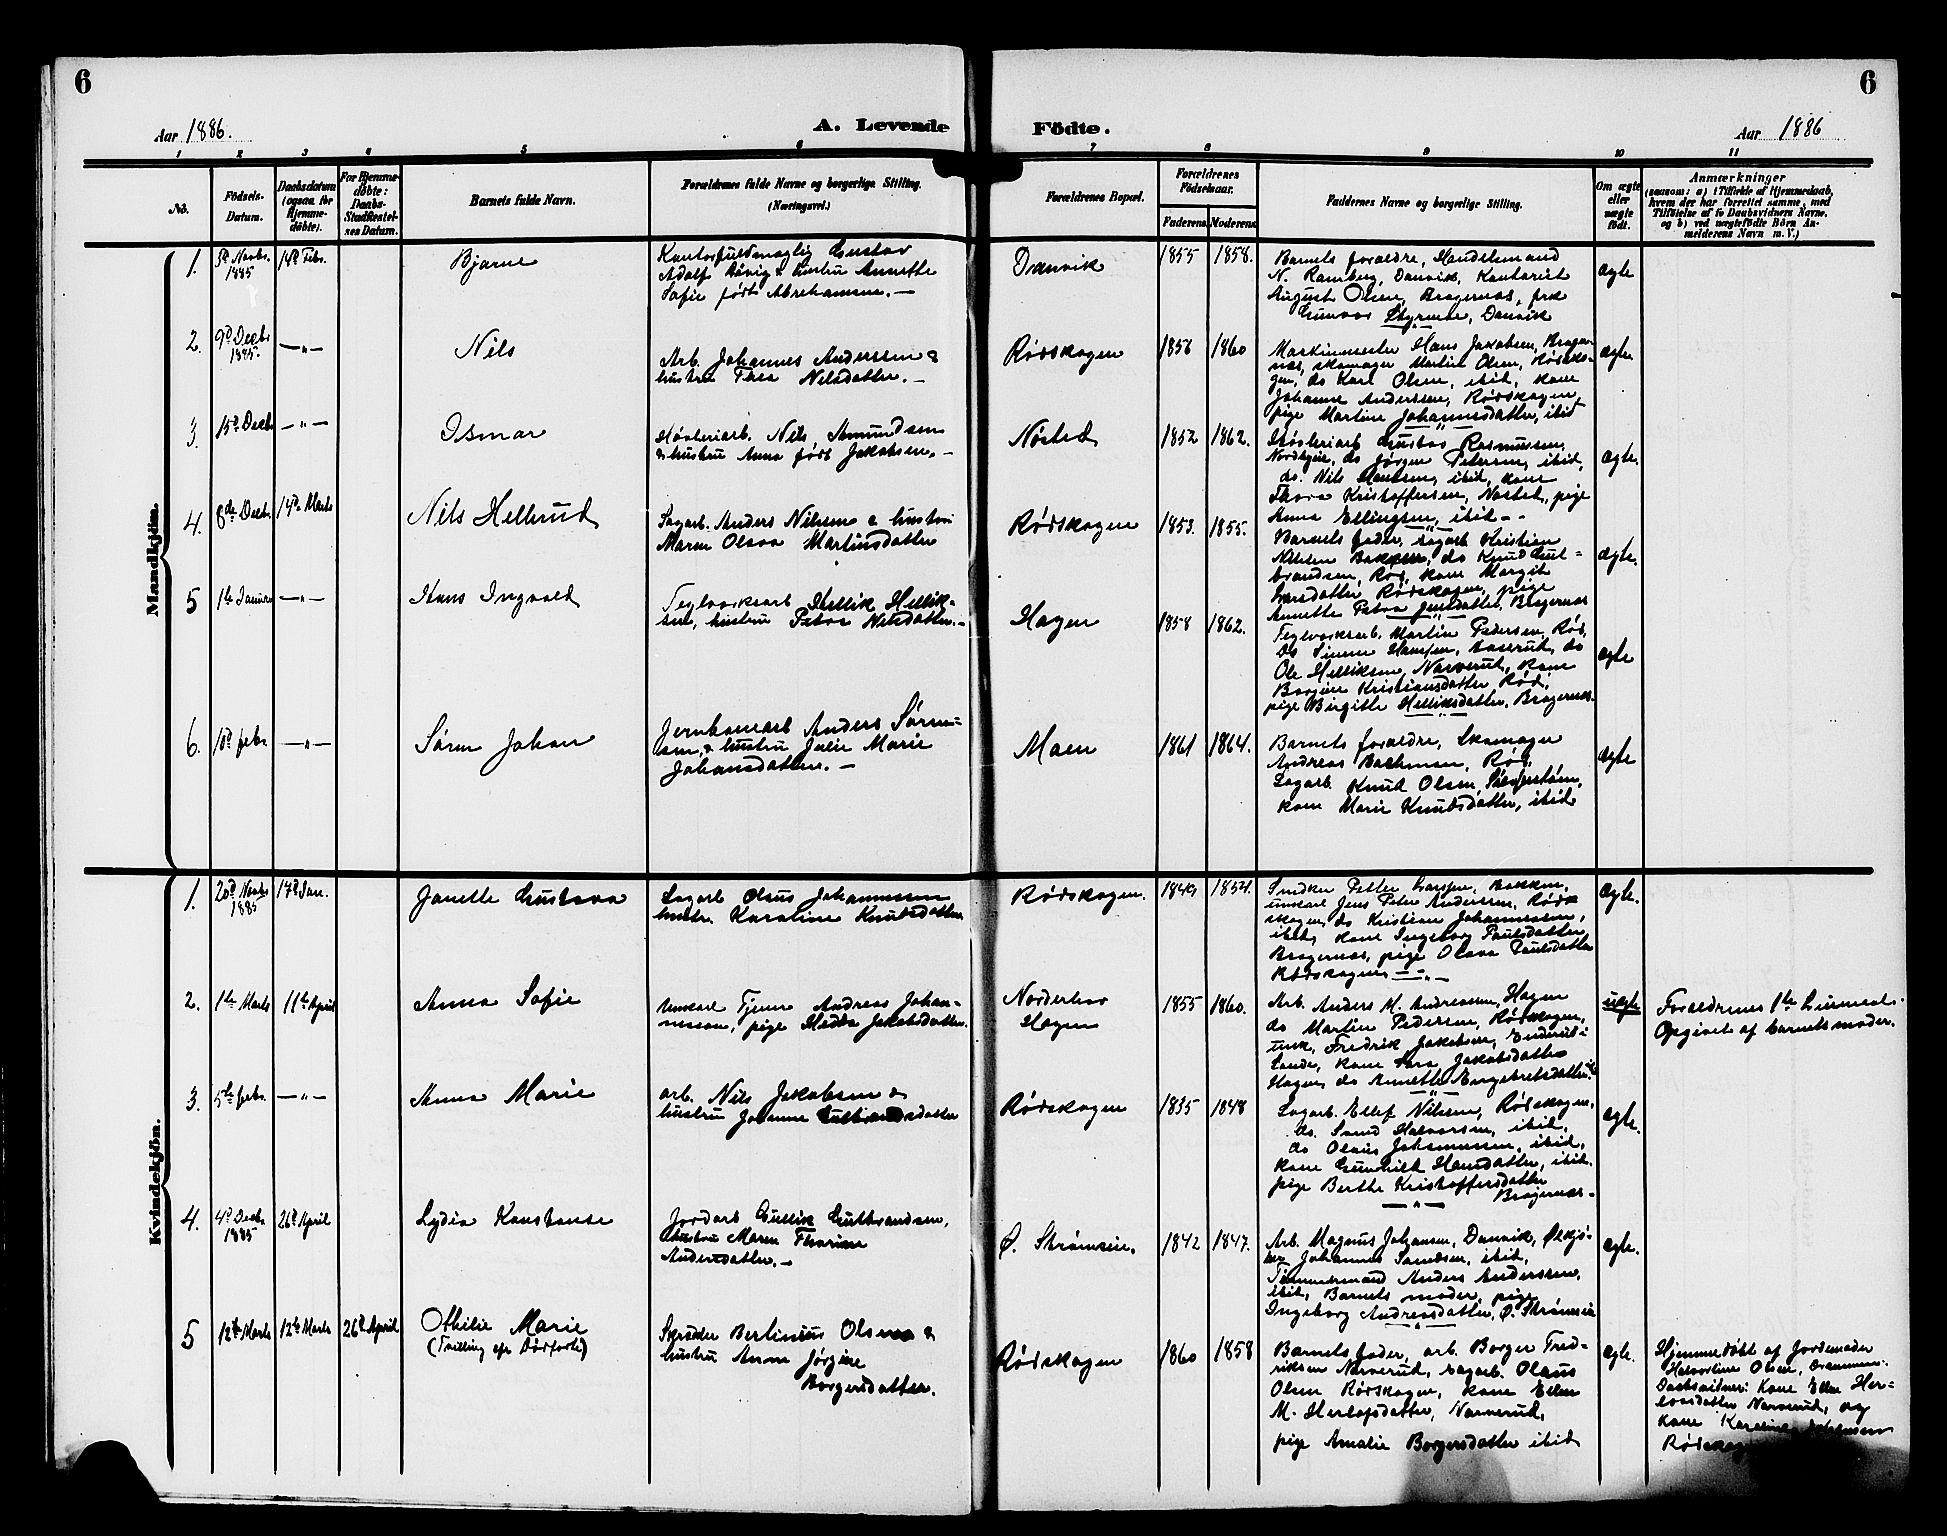 6
6
Aar 1886.
A. Levende Födte.
Aar 1886
1 2 3 4 5 6 7 8 9 10 11
No.
Födsels-
Datum.
Daabsdatum
(ogsaa for
Hjemme-
döbte).
For Hjemme-
döbte:
Daabs-
Stadfæstel-
ses Datum.
Barnets fulde Navn.
Forældrenes fulde Navne og borgerlige Stilling.
(Næringsvei.)
Forældrenes Bopæl.
Forældrenes
Födselsaar.
Faderens
Moderens
Faddernes Navne og borgerlige Stilling.
Om ægte
eller
uægte
födt.
Anmærkninger
(saasom: a) i Tilfælde af Hjemmedaab,
hvem der har forrettet samme, med
Tilföielse af to Daabsvidners Navne,
og b) ved uægtefödte Börn An-
melderens Navn m. V.)
Mandkjön.
1.
5d Novbr.
1885
14d Febr.
Bjarne
Kontorfuldmægtig Gustav
Adolf & hustru Annette
Sofie født Abrahamsen. —
Danvik
1855
1858.
Barnets forældre, Handelsmand
N. Ramberg, Danvik, Kontorist
August Olsen, Bragernæs, frk
Gunvor Styrmoe, Danvik
ægte
2.
9d Decbr
1885.
—"—
Nils
Arb. Johannes Anderssen &
hustru Thea Nilsdatter. —
Rødskogen
1856
1860
Maskinmester Hans Jakobsen, Brager-
næs, skomager Martin Olsen, Rødsko-
gen, do Karl Olsen, ibid, kone
Johanne Anderssen, Rødskogen,
pige Martine Johannesdatter, ibid
ægte
3.
15d Decbr
—"—
Osmar
Høvleriarb. Nils Amundsen
& hustru Anna født Jakobsen. —
Nøsted
1852
1862.
Høvleriarb Gustav Rasmussen,
do Jørgen Petersen, ibid,
do. Nils ibid, kone
Thora Kristoffersen, Nøsted, pige
Anna Ellingsen, ibid —
ægte.
4.
8de Decbr.
14de Marts
Nils Hellerud
Sagarb. Anders Nilsen & hustru
Maren Olava Martinsdatter
Rødskogen
1853.
1855.
Barnets fader, sagarb Kristian
Nilsen Bakken, do Knud Gul-
brandsen, Rød, kone Margit
Larsdatter Rødskogen, pige
Annette Petra Jensdatter, Bragernæs
ægte.
5
1te Januar
—"—
Hans Ingvald
Teglværksarb Hellik Hellik-
sen, hustru Petra Nilsdatter. —
Hagen
1858
1862.
Teglværksarb. Martin Pedersen, Rød,
do Simen Hansen, do
Ole Helliksen, Narverud, kone
Kristiansdatter Rød,
pige Birgitte Helliksdatter, Bragernæs.
ægte
6.
10d febr.
—"—
Søren Johan
Jernbanearb Anders Søren-
sen, & hustru Julie Marie
Johansdatter. —
Moen
1861
1864.
Barnets forældre, Skomager
Andreas Rød,
Sagarb. Knud Olsen,
kone Marie Knudsdatter, ibid
ægte
Kvindekjön.
1.
20d Novbr
1885
17d Jan.
Janette Gustava
Sagarb Olaus Johannessen
hustru Karoline Knudsdatter
Rødskogen.
1849
1854.
Snedker Petter Larsen, Bakken,
unkarl Jens Peter Anderssen, Rød-
skogen, do Kristian Johannessen,
ibid, kone Ingeborg Paulsdatter
Bragernæs, pige Olava Paulsdatter
Rødskogen —"—
ægte.
2.
1te Marts
11te April
Anna Sofie
Unkarl Tjener Andreas Johan-
nessen, pige Hedda Jakobsdatter.
Norderhov
Hagen
1855
1860.
Arb. Anders M. Andreassen, Hagen
do Martin Pedersen, Rødskogen,
unk. Fredrik Jakobsen,
Sande, kone Sara Jakobsdatter
Hagen, do Annette Engebretsdatter,
uægte
Forældrenes 1te Leiermaal.
Opgivet af barnets moder.
3.
5te febr.
—"—
Anna Marie
arb. Nils Jakobsen &
hustru Johanne Gulbrandsdatter
Rødskogen
1835
1848
Sagarb. Ellef Nilsen, Rødskogen,
do. Svend Halvorsen, ibid,
do Olaus Johannessen, ibid,
kone Gunhild Hansdatter, ibid.
pige Berthe Kristoffersdatter
Bragernæs.
—"—
ægte.
4.
4d Decbr
1885
26d April
Lydia Konstanse
Jordarb Gullik Gulbrandsen,
& hustru Maren Thorine
Andersdatter. —
Ø. Strømsøie.
1842
1847.
Arb. Magnus Johansen, Danvik, Ølkjø-
rer Johannes ibid,
Tømmermand Anders Anderssen,
ibid, Barnets moder, pige
Ingeborg Andreasdatter, Ø. Strømsøie
ægte.
5
12te Marts
12te Marts
26d April
Othilie Marie
(Tvilling efr Dødfødt)
Skrædder Bertinius Olsen &
hustru Anne Jørgine
Borgersdatter.
Rødskogen
1860
1858
Barnets fader, arb. Borger Fred-
riksen Narverud, sagarb. Olaus
Olsen Rødskogen, kone Ellen
M. Herlofsdatter, Narverud,
pige Amalie Borgersdatter ibid
ægte.
Hjemmedøbt af Jordemoder
Halvordine Olsen, Drammen.
Daabsvidner: Kone Ellen Her-
lovsdatter Narverud, og
kone Karoline Johansen
Rødskogen